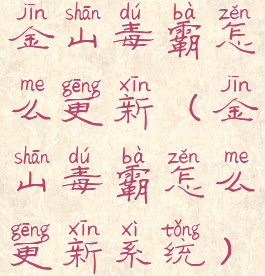 jīn shān dú bà zěn
金山毒霸怎
me gēng xīn jīn
么更新（金
shān dú bà zěn me
山毒霸怎么
gēng xīn xì tǒng
更新系统）